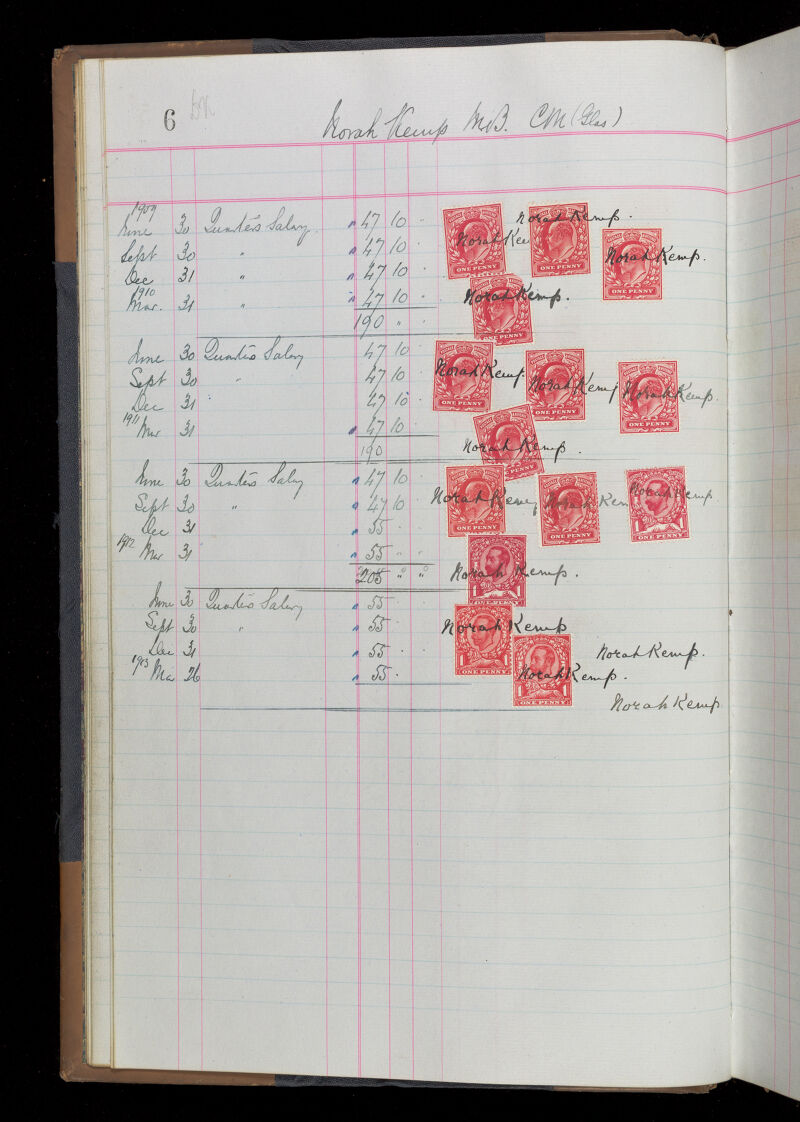 6
Norah Kemp M.B. CM (Glas)
1909
June 30 Quarter's Salary " 47 10 "
Sept 30 " " 47 10 "
Dec 31 " " 47 10 "
1910
Mar. 31 " " 47 10 "
190 " "
June 30 Quarter's Salary 47 10
Sept 30 " 47 10
Dec 31 " 47 10
1911
Mar 31 " 47 10
190
June 30 Quarter's Salary " 47 10
Sept 30 " " 47 10
Dec 31 " 55
1912
Mar 31 " 55 " "
205 " "
June 30 Quarter's Salary " 55
Sept 30 " " 55
Dec 31 " 55
1913
Mar 26 " 55
Norah Kemp.
Norah Kemp
Norah Kemp.
Norah Kemp.
Norah Kemp
Norah Kemp
Norah Kemp.
Norah Kemp.
Norah Kemp
Norah Kemp
Norah Kemp
Norah Kemp.
Norah Kemp
Norah Kemp.
Norah Kemp.
Norah Kemp
ONE PENNY
ONE PENNY
ONE PENNY
ONE PENNY
ONE PENNY
ONE PENNY
ONE PENNY
ONE PENNY
ONE PENNY
ONE PENNY
1 ONE PENNY 1
1 ONE PENNY 1
1 ONE PENNY 1
1 ONE PENNY 1